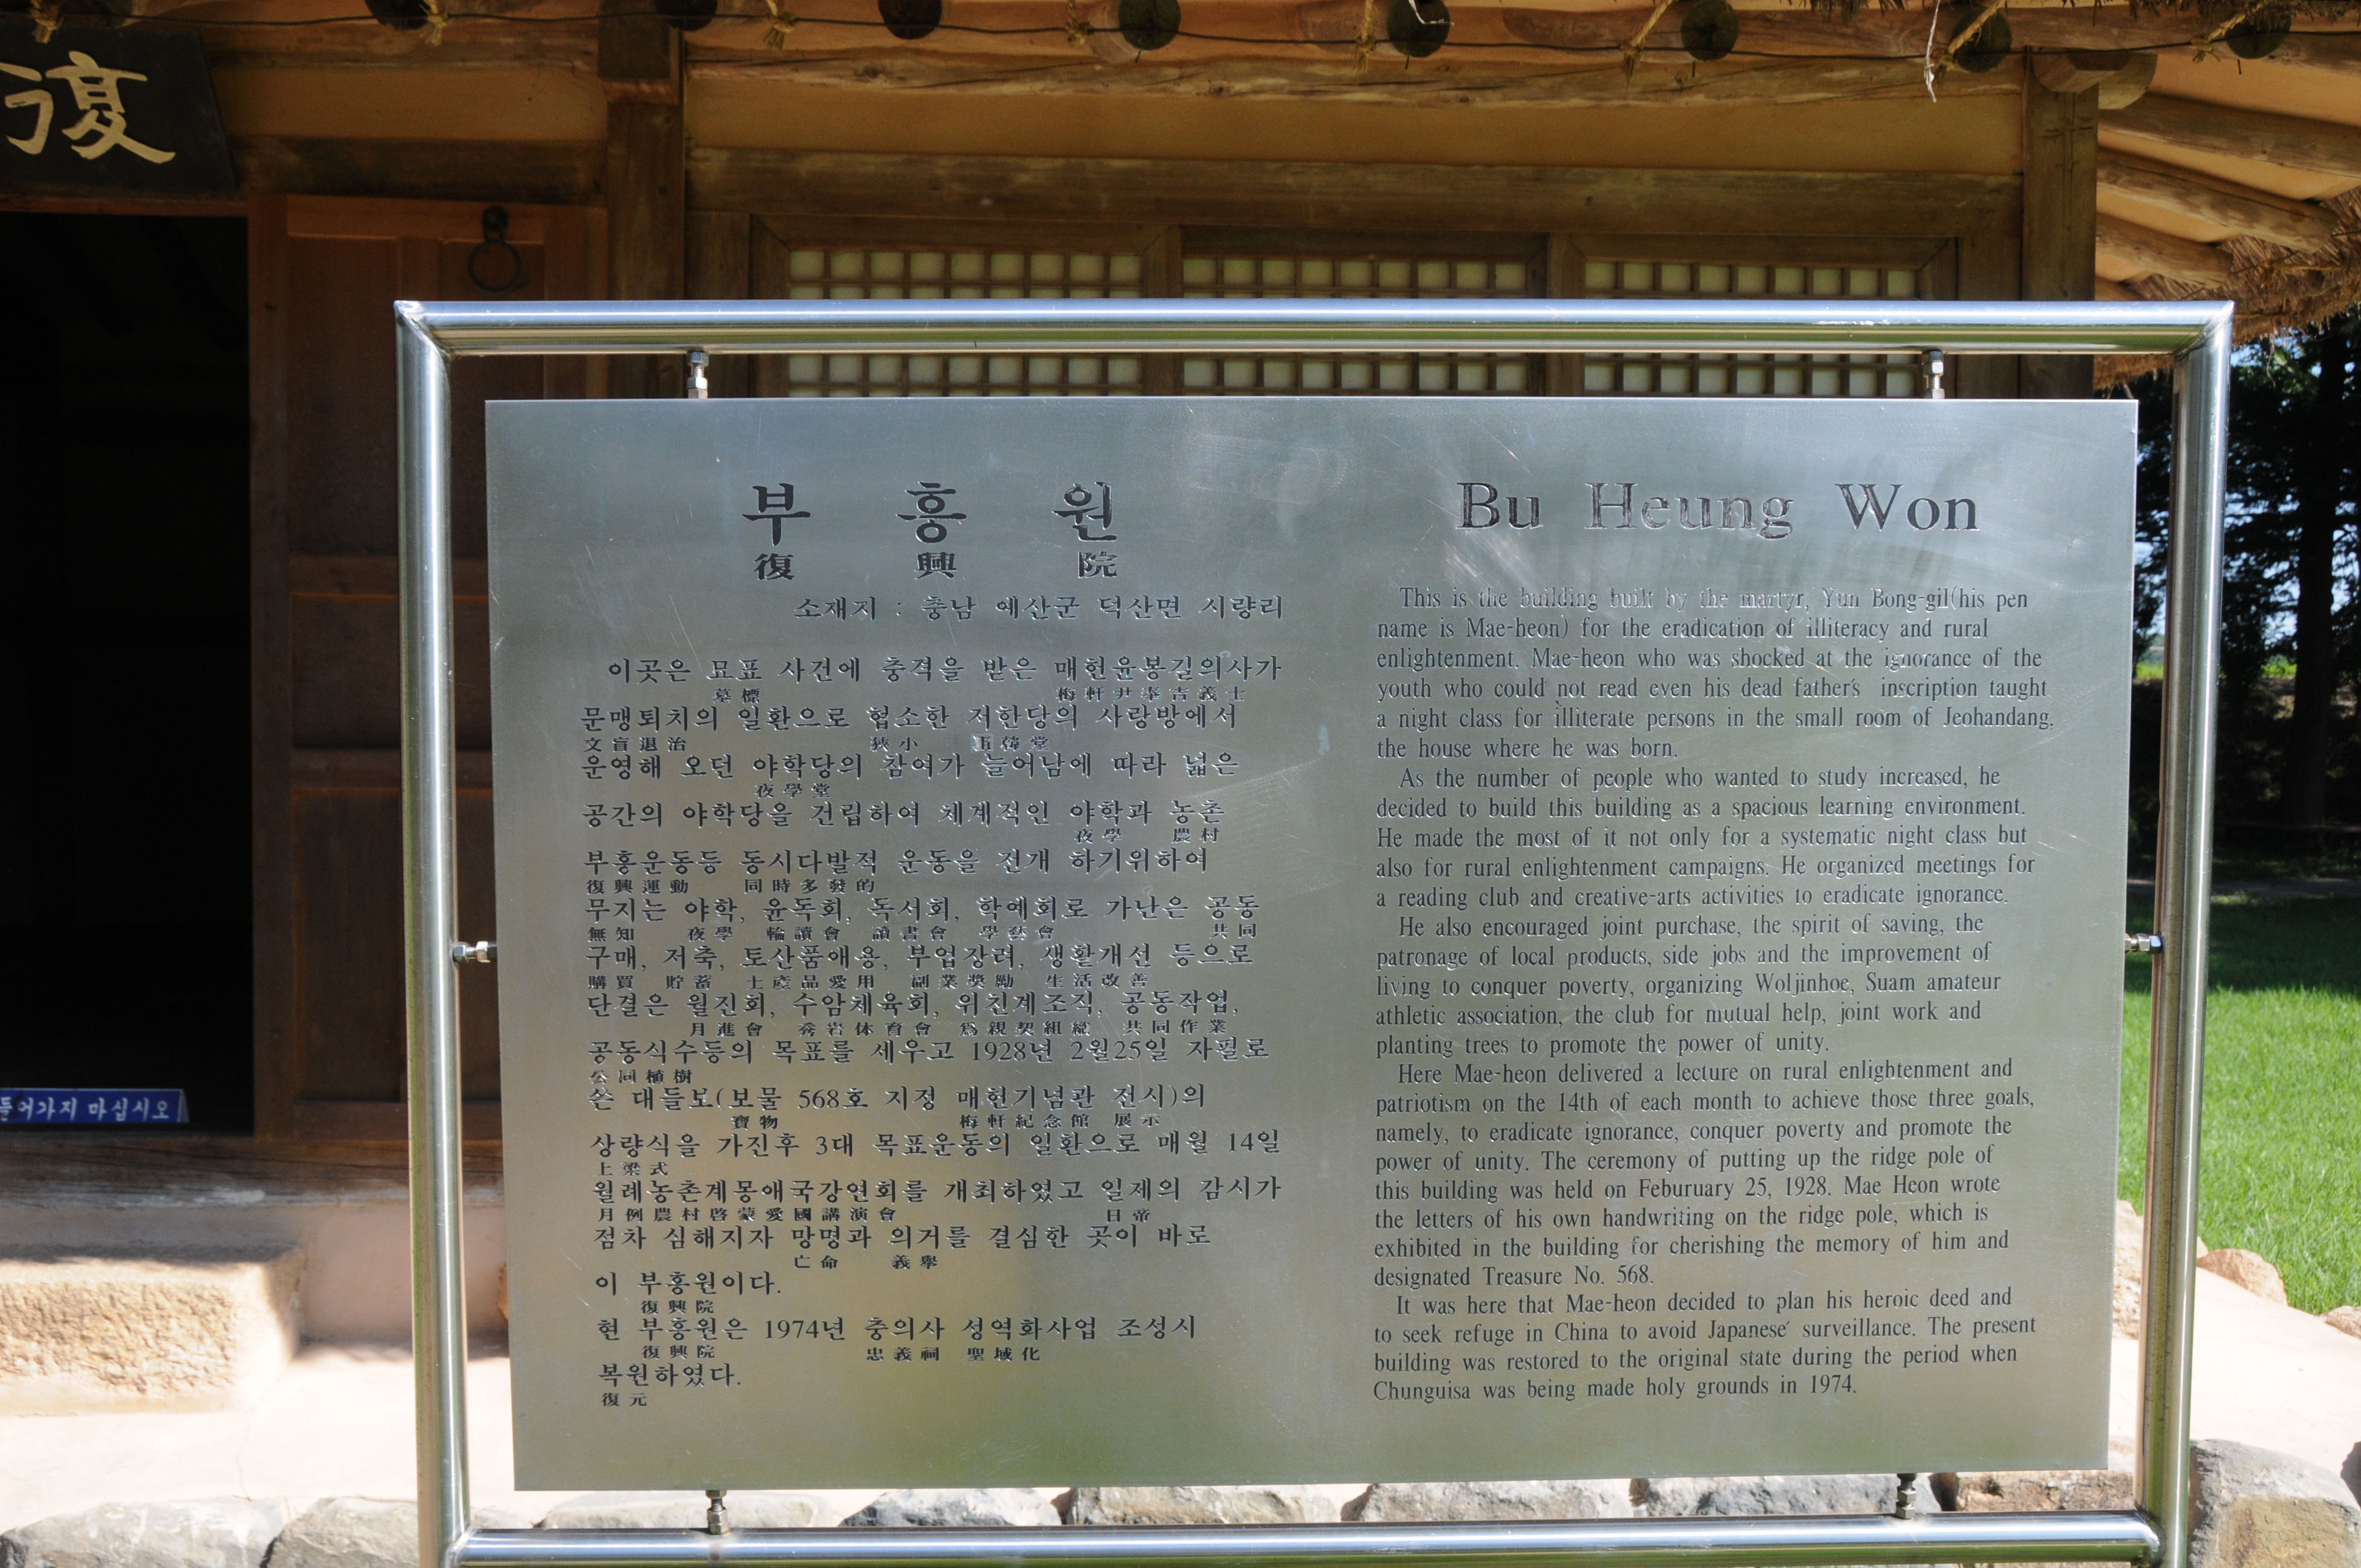 復
들어가지 마십시오
부 흥 원
復 興 院
소재지 : 충남 예산군 덕산면 시량리
이곳은 묘표 사건에 충격을 받은 매헌윤봉길의사가
墓標 梅軒尹奉吉義士
문맹퇴치의 일환으로 협소한 저한당의 사랑방에서
文盲退治 狹小 韓堂
운영해 오던 야학당의 참여가 늘어남에 따라 넓은
夜學堂
공간의 야학당을 건립하여 체계적인 야학과 농촌
夜學 農村
부흥운동등 동시다발적 운동을 전개 하기위하여
復興運動 同時多發的
무지는 야학, 윤독회, 독서회, 학예회로 가난은 공동
無知 夜學 輪讀會 讀書會 學藝會 共同
구매, 저축, 토산품애용, 부업장려, 생활개선 등으로
購買 貯蓄 土産品愛用 副業奬勵 生活改善
단결은 월진회, 수암체육회, 위친계조직, 공동작업,
月進會 秀岩体育會 爲親契組織 共同作業
공동식수등의 목표를 세우고 1928년 2월25일 자필로
公同植樹
쓴 대들보(보물 568호 지정 매헌기념관 전시)의
寶物 梅軒紀念館 展示
상량식을 가진후 3대 목표운동의 일환으로 매월 14일
上梁式
월례농촌계몽애국강연회를 개최하였고 일제의 감시가
月例農村啓蒙愛國講演會 日帝
점차 심해지자 망명과 의거를 결심한 곳이 바로
亡命 義擧
이 부흥원이다.
復興院
현 부흥원은 1974년 충의사 성역화사업 조성시
復興院 忠義祠 聖域化
복원하였다.
復元
Bu Heung Won
This is the building built by the martyr, Yun Bong-gil(his pen
name is Mae-heon) for the eradication of illiteracy and rural
enlightenment. Mae-heon who was shocked at the ignorance of the
youth who could not read even his dead father's inscription taught
a night class for illiterate persons in the small room of Jeohandang,
the house where he was born.
As the number of people who wanted to study increased, he
decided to build this building as a spacious learning environment.
He made the most of it not only for a systematic night class but
also for rural enlightenment campaigns. He organized meetings for
a reading club and creative-arts activities to eradicate ignorance.
He also encouraged joint purchase, the spirit of saving, the
patronage of local products, side jobs and the improvement of
living to conquer poverty, organizing Woljinhoe, Suam amateur
athletic association, the club for mutual help, joint work and
planting trees to promote the power of unity.
Here Mae-heon delivered a lecture on rural enlightenment and
patriotism on the 14th of each month to achieve those three goals,
namely, to eradicate ignorance, conquer poverty and promote the
power of unity. The ceremony of putting up the ridge pole of
this building was held on Feburuary 25, 1928. Mae Heon wrote
the letters of his own handwriting on the ridge pole, which is
exhibited in the building for cherishing the memory of him and
designated Treasure No. 568.
It was here that Mae-heon decided to plan his heroic deed and
to seek refuge in China to avoid Japanese' surveillance. The present
building was restored to the original state during the period when
Chunguisa was being made holy grounds in 1974.